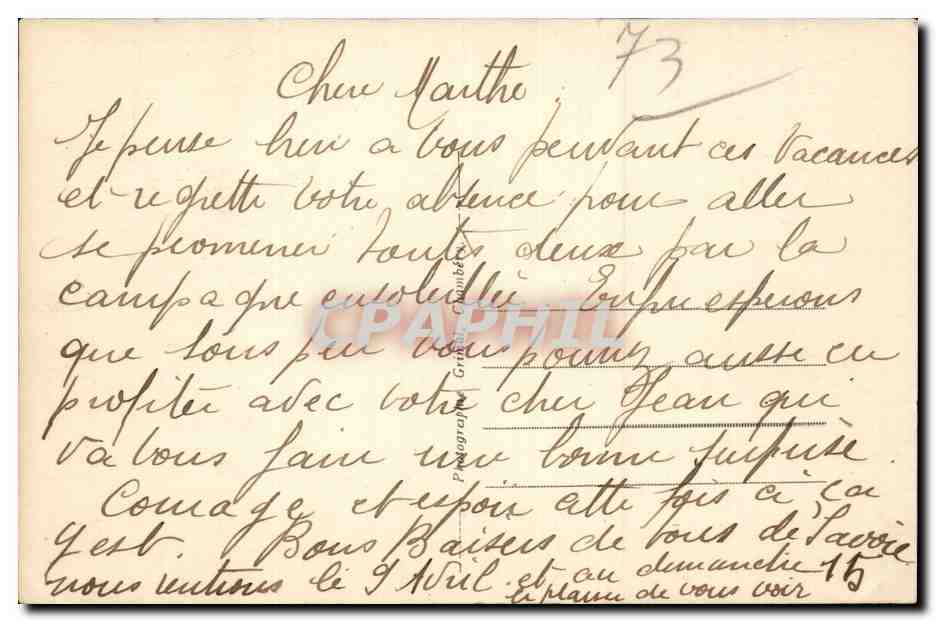 73
Chere Marthe
Je pense bien a vous pendant ces vacances
et regrette votre absence pour aller
se promener toutes deux par la
campagne ensoleillée Enfin esperons
que sous peu vous pourrez aussi en
profiter avec votre cher Jean qui
va vous faire une bonne surprise.
Courage et espoir cette fois ci ca
y est. Bons Baisers de tous de Savoie
nous rentrons le 9 Avril et au dimanche 15
le plaisir de vous voir
Photographe Grimal, Chambéry
CPAPHIL